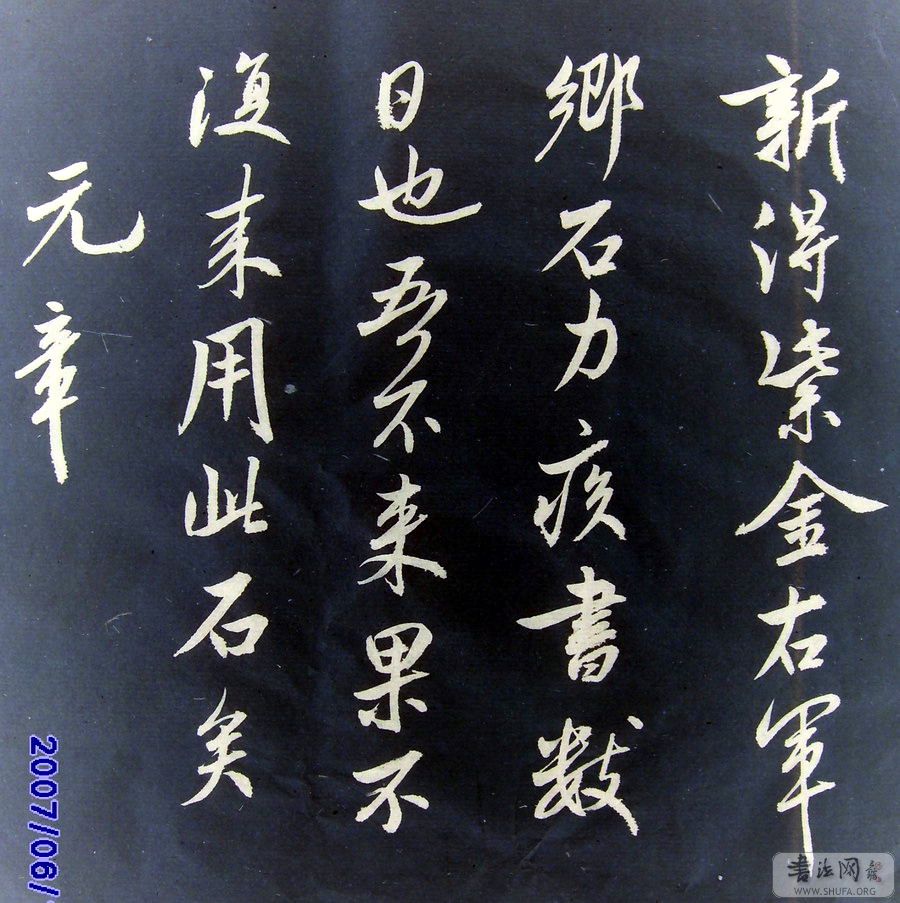 新得紫金右軍
鄉石力疾書數
日也吾不來果不
復來用此石矣
元章
2007/06/
書法网
WWW.SHUFA.ORG